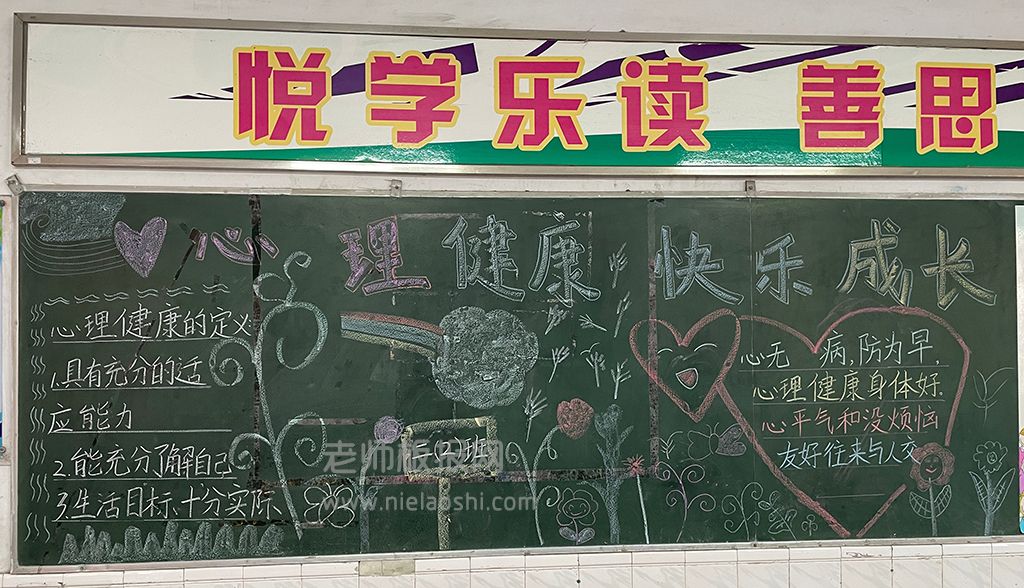 悦学乐读 善思
心理健康 快乐成长
心理健康的定义
1.具有充分的适
应能力
2.能充分了解自己
3.生活目标十分实际
班
心无 病,防为早,
心理健康身体好.
心平气和没烦恼
友好往来与人交
老师板报网
www.nielaoshi.com